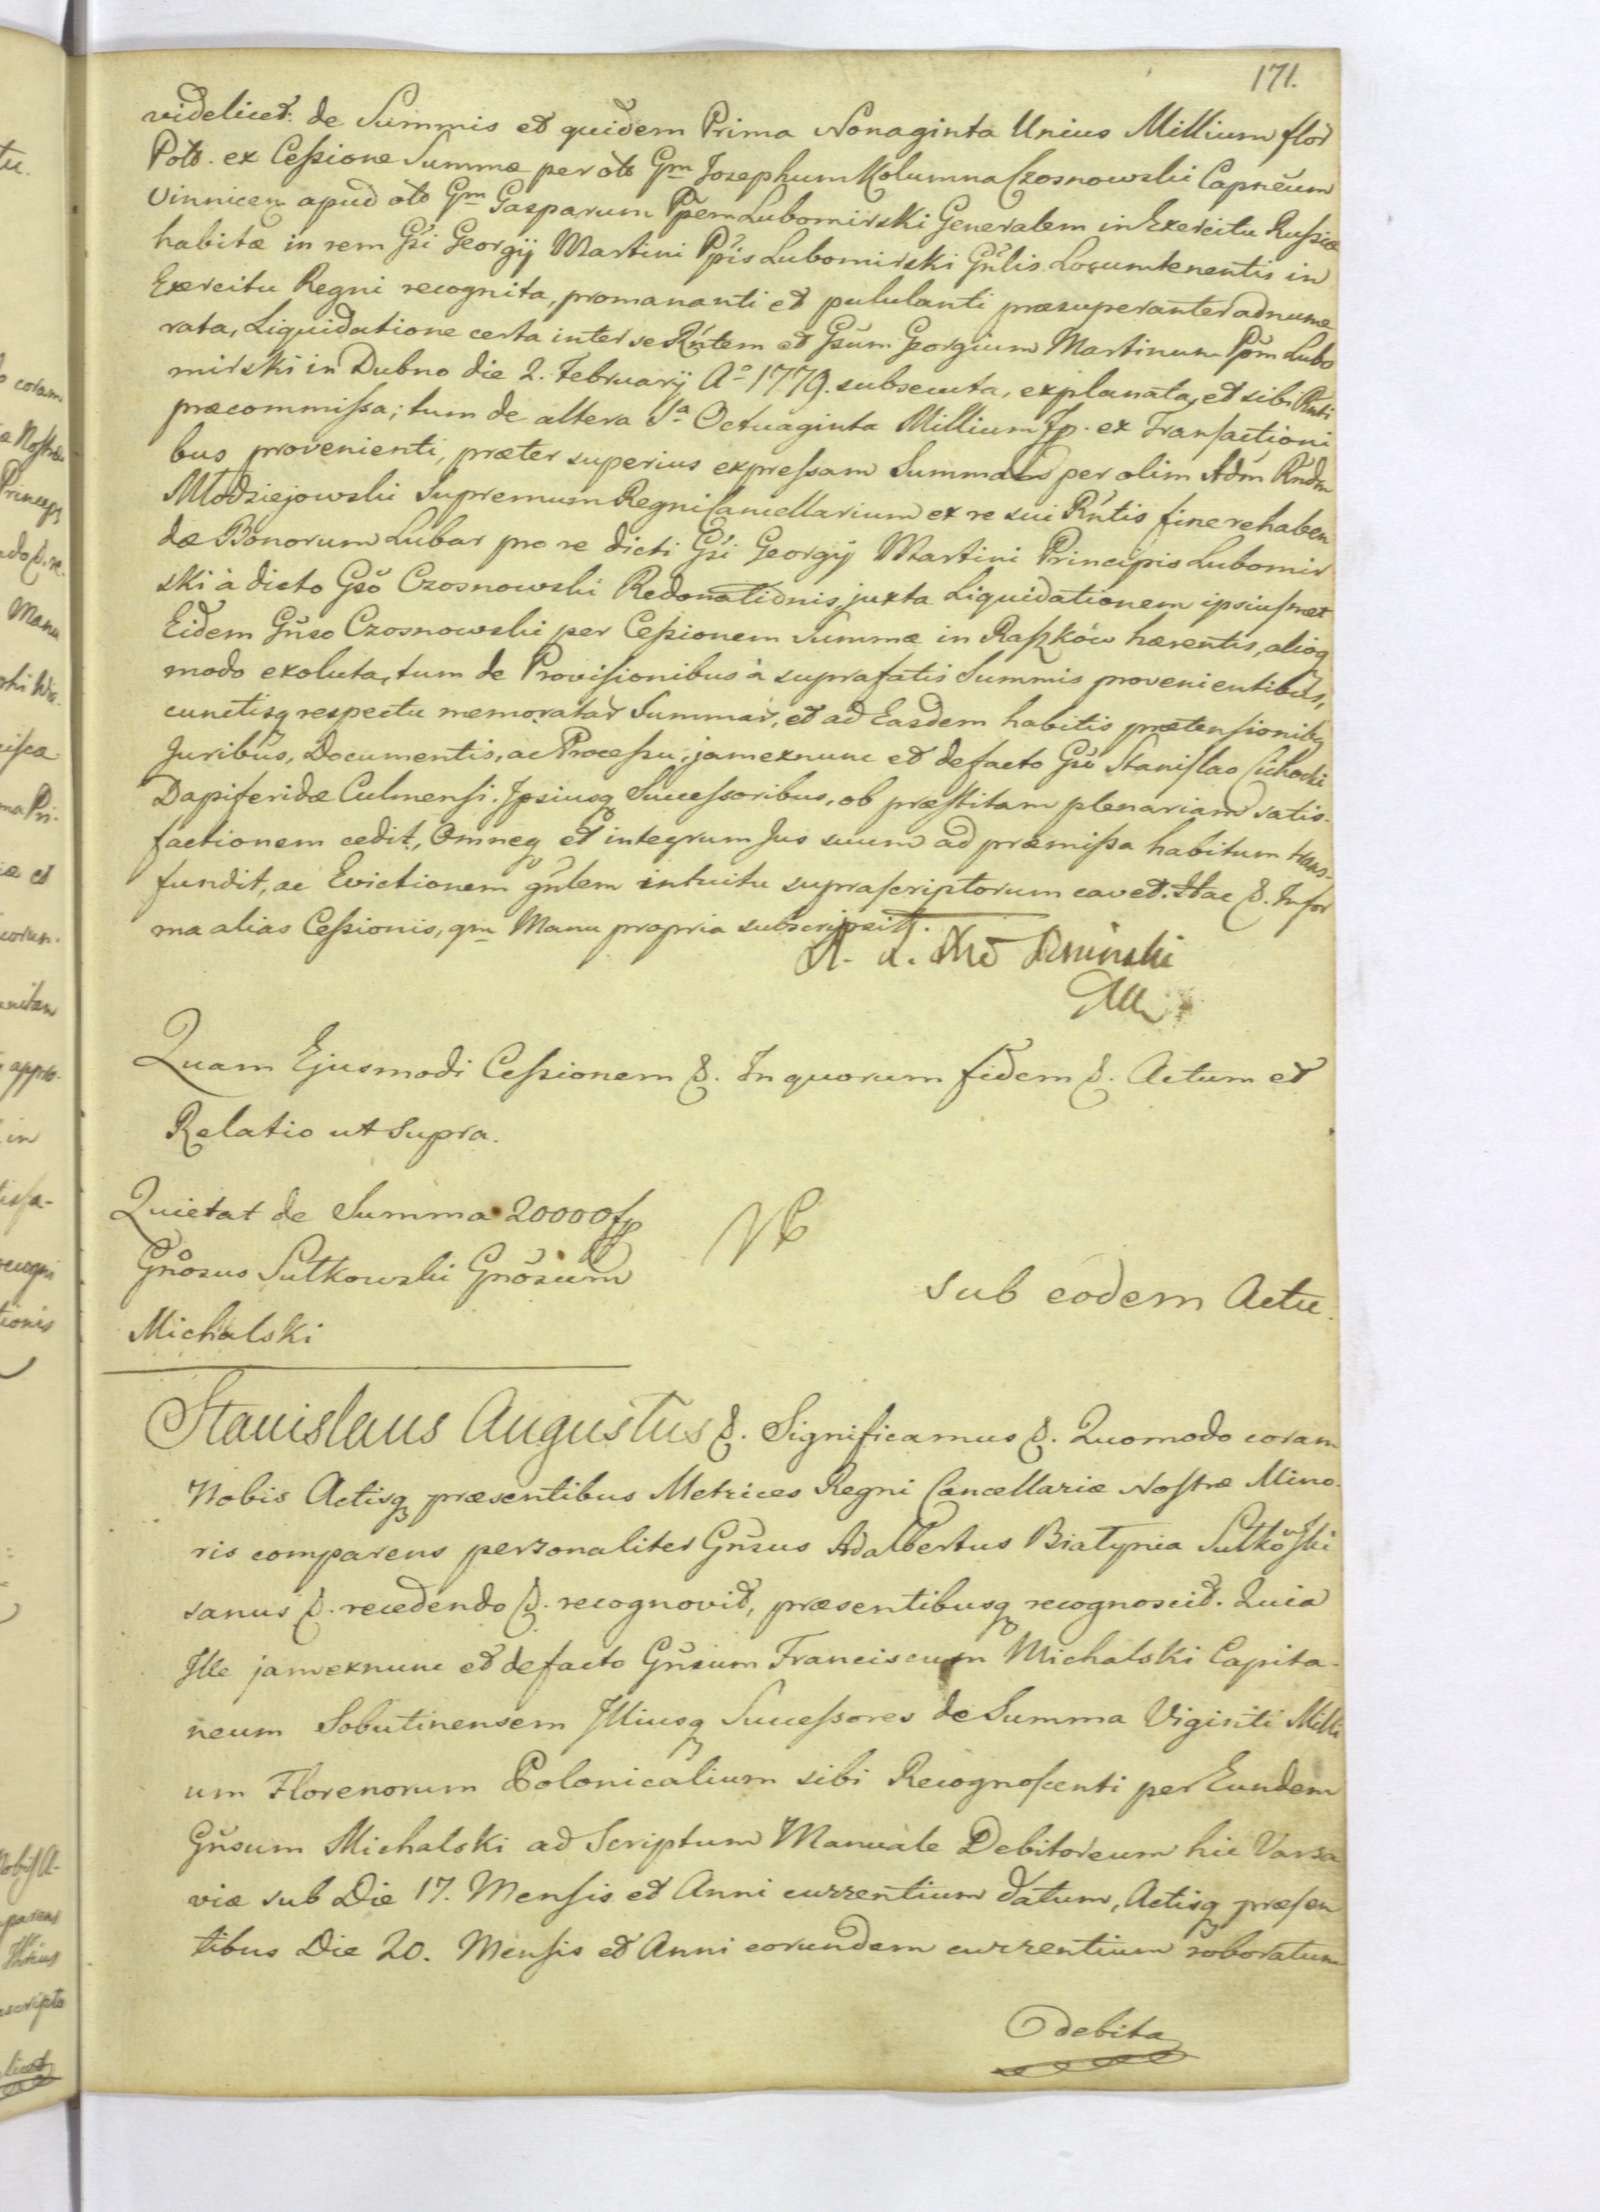 171.
videlicet: de Summis et quidem Prima Nonaginta Unius Millium flor
Polo. ex Cessione Summæ per olo Gm Josephum Kolumna Czosnowski Capneum
Vinnicen apud olo Gm Gasparum Ppem Lubomirski Generalem in Exercitu Russiæ
habitæ in rem Gsi Georgij Martini Ppis Lubomirski Gnlis Locumtenentis in
Exercitu Regni recognita, promananti et pululanti præsuperanter adnume
rata, Liquidatione certa inter se Rntem et Gsum Georgium Martinum Ppm Lubo
mirski in Dubno die 2. Februarij Ao 1779. subsecuta, explanata, et sibi Rnti
præcommissa; tum de altera Sa Octuaginta Millium fp. ex Transactioni
bus provenienti, præter superius expressam Summam per olim Adm Rndm
Młodziejowski Supremum Regni Cancellarium ex re sui Rntis fine rehaben
dæ Bonorum Lubar pro re dicti Gsi Georgij Martini Principis Lubomir
ski à dicto Gso Czosnowski Redonationis, juxta Liquidationem ipsiusmet
Eidem Gnso Czosnowski per Cessionem Summæ in Raszków hærentis, alioq
modo exoluta, tum de Provisionibus à suprafatis Summis provenientibus,
cunctisq respectu memoratar Summar, et ad Easdem habitis prætensionibq
Juribus, Documentis, ac Processu, jam exnunc et defacto Gso Stanislao Cichocki
Dapiferidæ Culmensi. Ipsiusq Successoribus, ob præstitam plenariam satis-
factionem cedit, Omneq et integrum Jus suum ad præmissa habitum trans-
fundit, ac Evictionem gnlem intuitu suprascriptorum cavet. Hac &. Infor
ma alias Cessionis, qm Manu propria subscripsit.
Quam Ejusmodi Cessionem &. In quorum fidem &. Actum et
Relatio ut supra.
Quietat de Summa 20000 fp
Gnosus Sutkowski Gnosum
Michalski
sub eodem Actu.
Stanislaus Augustus &. Significamus &. Quomodo coram
Nobis Actisq præsentibus Metrices Regni Cancellariæ Nostræ Mino-
ris comparens personaliter Gnsus Adalbertus Białynia Sutkowski
sanus &. recedendo &. recognovit, præsentibusq recognoscit. Quia
Ille jam exnunc et defacto Gnsum Franciscum Michalski Capita-
neum Sobutinensem Illiusq Successores de Summa Viginti Milli
um Florenorum Polonicalium sibi Recognoscenti per Eundem
Gnsum Michalski ad Scriptum Manuale Debitoreum hic Varsa
viæ sub Die 17. Mensis et Anni currentium datum, Actisq præsen
tibus Die 20. Mensis et Anni eorundem currentium roboratum
debita